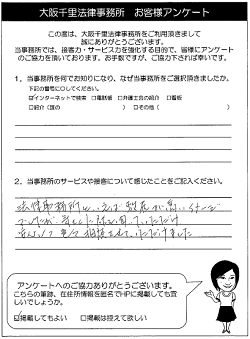 大阪千里法律事務所 お客様アンケート
この度は、大阪千里法律事務所をご利用頂きまして
誠にありがとうございます。
当事務所では、接客力・サービス力を強化する目的で、皆様にアンケート
のご協力を頂いております。お手数ですが、ご協力下されば幸いです。
1．当事務所を何でお知りになり、なぜ当事務所をご選択頂きましたか。
下記の番号に○してください。
☑インターネットで検索 □電話帳 □弁護士会の紹介 □看板
□紹介（誰の ） □その他（ ）
2．当事務所のサービスや接客について感じたことをご記入ください。
法律事務所といえば敷居が高いイメージ
でしたが
安心して
相談することができました
アンケートへのご協力ありがとうございます。
こちらの筆跡、在住所情報を匿名でHPに掲載しても宜
しいでしょうか。
☑掲載してもよい □掲載は控えて欲しい